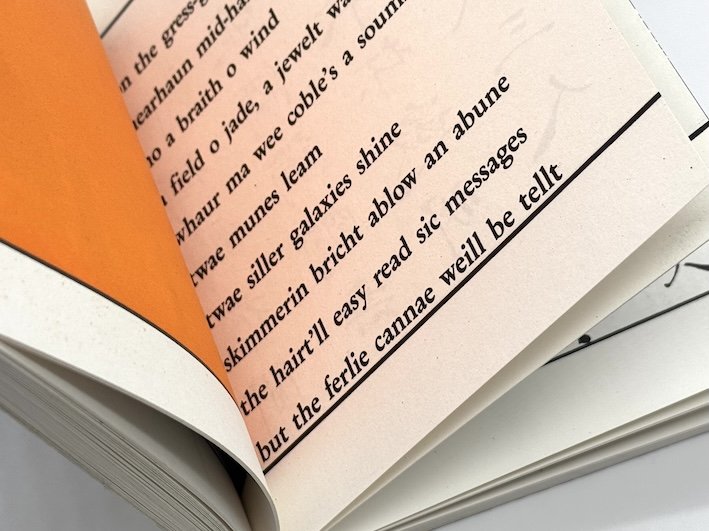 the gress-
mid-
a braith o wind
field o jade, a jewelt
whaur ma wee coble's a
twae munes leam
twae siller galaxies shine
skimmerin bricht ablow an abune
the hairt'll easy read sic messages
but the ferlie cannae weill be tellt